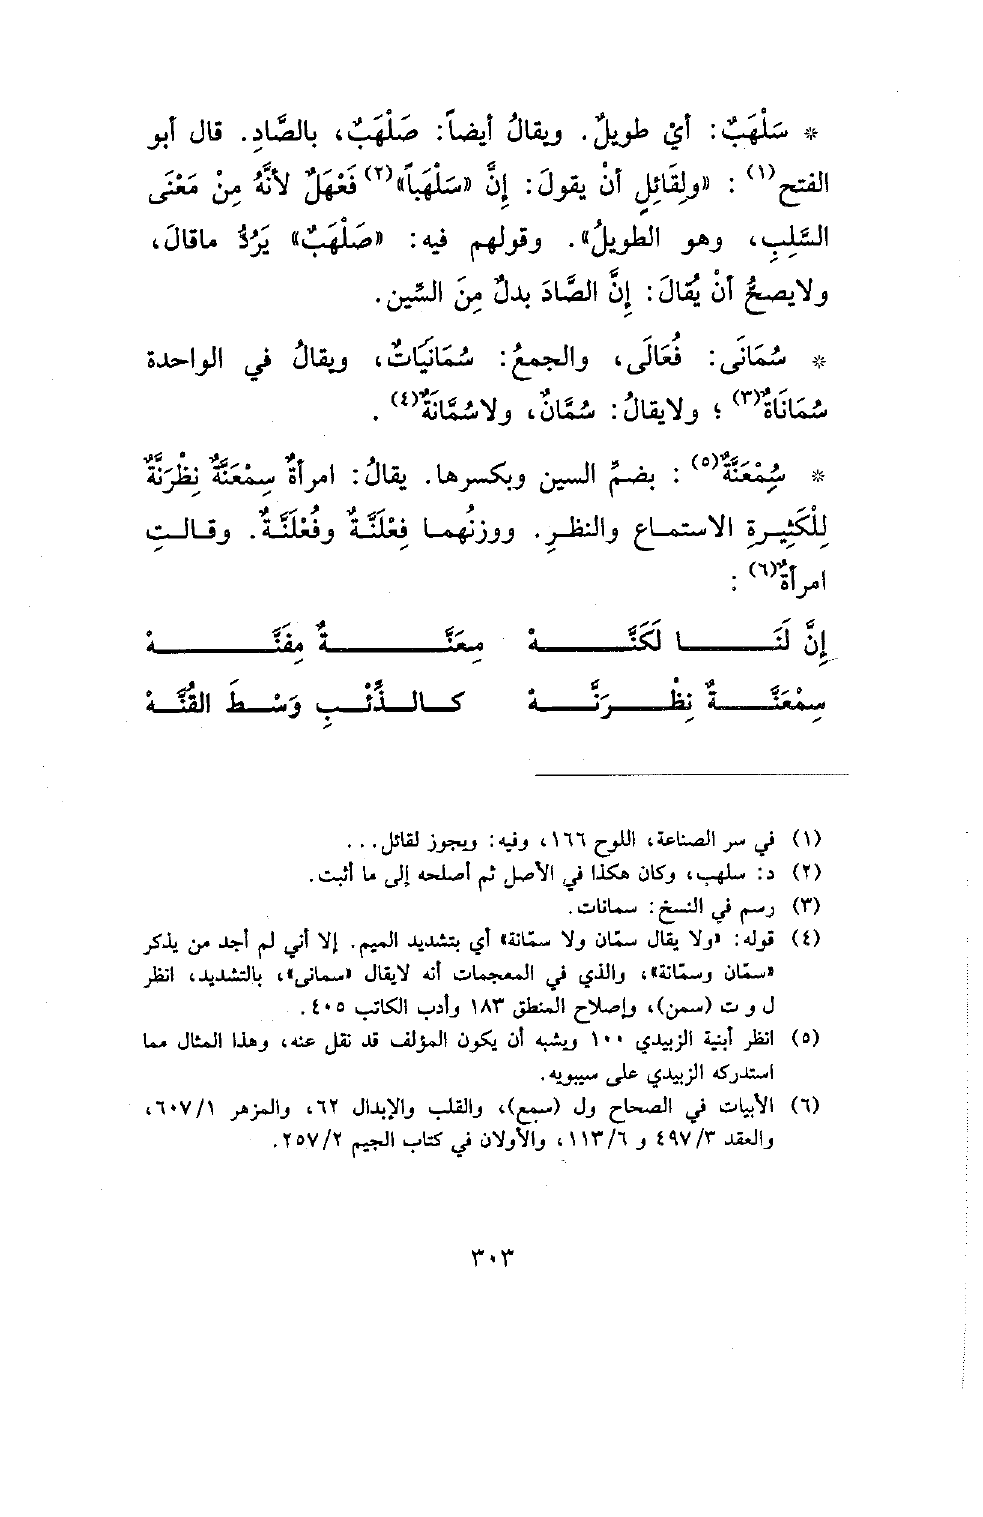 * سَلْهَبٌ: أيْ طويلٌ. ويقالُ أيضاً: صَلْهَبٌ، بالصَّادِ. قال أبو
الفتح(١) : «ولِقَائِلٍ أنْ يقولَ: إنَّ «سَلْهَباً»(٢) فَعْهَلٌ لأنَّهُ مِنْ مَعْنَى
السَّلِبِ، وهو الطويلُ». وقولهم فيه: «صَلْهَبٌ» يَرُدُّ ماقالَ،
ولايصحُّ أنْ يُقالَ: إنَّ الصَّادَ بدلٌ مِنَ السِّين.
* سُمَانَى: فُعَالَى، والجمعُ: سُمَانَيَاتٌ، ويقالُ في الواحدة
سُمَانَاةٌ(٣) ؛ ولايقالُ: سُمَّانٌ، ولاسُمَّانَةٌ(٤) .
* سُِمْعَنَّةٌ(٥) : بضمِّ السين وبكسرها. يقالُ: امرأةٌ سِمْعَنَّةٌ نِظْرَنَّةٌ
لِلْكَثِيرةِ الاستماع والنظرِ. ووزنُهما فِعْلَنَّةٌ وفُعْلَنَّةٌ. وقالتِ
امرأةٌ(٦) :
إنَّ لَنَا لَكَنَّهْ مِعَنَّةٌ مِفَنَّهْ
سِمْعَنَّةٌ نِظْرَنَّهْ كالذِّئْبِ وَسْطَ القُنَّهْ
(١) في سر الصناعة، اللوح ١٦٦، وفيه: ويجوز لقائل...
(٢) د: سلهب، وكان هكذا في الأصل ثم أصلحه إلى ما أثبت.
(٣) رسم في النسخ: سمانات.
(٤) قوله: «ولا يقال سمّان ولا سمّانة» أي بتشديد الميم. إلا أني لم أجد من يذكر
«سمّان وسمّانة»، والذي في المعجمات أنه لايقال «سمانى»، بالتشديد، انظر
ل و ت (سمن)، وإصلاح المنطق ١٨٣ وأدب الكاتب ٤٠٥.
(٥) انظر أبنية الزبيدي ١٠٠ ويشبه أن يكون المؤلف قد نقل عنه، وهذا المثال مما
استدركه الزبيدي على سيبويه.
(٦) الأبيات في الصحاح ول (سمع)، والقلب والإبدال ٦٢، والمزهر ٦٠٧/١،
والعقد ٤٩٧/٣ و ١١٣/٦، والأولان في كتاب الجيم ٢٥٧/٢.
٣٠٣